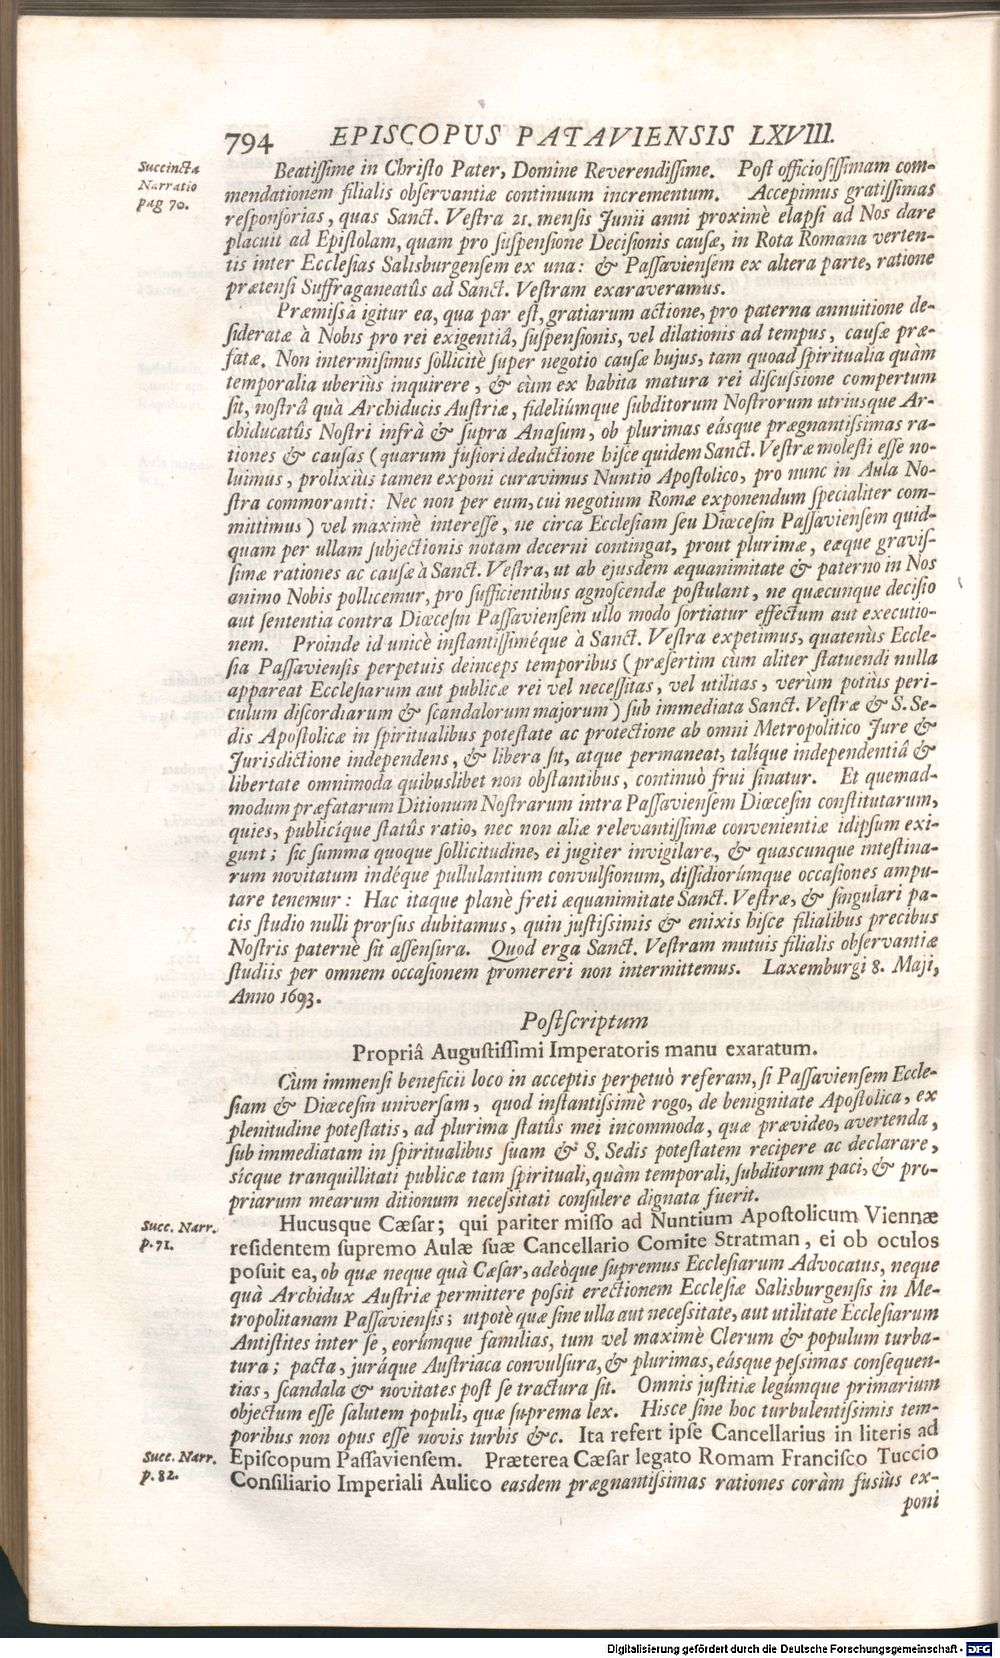 794 EPISCOPUS PATAVIENSIS LXVIII.
Succincta
Narratio
pag 70.
Beatissime in Christo Pater, Domine Reverendissime. Post officiosissimam com-
mendationem filialis observantiæ continuum incrementum. Accepimus gratissimas
responsorias, quas Sanct. Vestra 21. mensis Junii anni proximè elapsi ad Nos dare
placuit ad Epistolam, quam pro suspensione Decisionis causæ, in Rota Romana verten-
tis inter Ecclesias Salisburgensem ex una: & Passaviensem ex altera parte, ratione
prætensi Suffraganeatûs ad Sanct. Vestram exaraveramus.
Præmissâ igitur ea, qua par est, gratiarum actione, pro paterna annuitione de-
sideratæ à Nobis pro rei exigentiâ, suspensionis, vel dilationis ad tempus, causæ præ-
fatæ. Non intermisimus sollicitè super negotio causæ hujus, tam quoad spiritualia quàm
temporalia uberiùs inquirere, & cùm ex habita matura rei discussione compertum
sit, nostrâ quà Archiducis Austriæ, fideliúmque subditorum Nostrorum utriusque Ar-
chiducatûs Nostri infrà & supra Anasum, ob plurimas eásque prægnantissimas ra-
tiones & causas (quarum fusiori deductione hisce quidem Sanct. Vestræ molesti esse no-
luimus, prolixiùs tamen exponi curavimus Nuntio Apostolico, pro nunc in Aula No-
stra commoranti: Nec non per eum, cui negotium Romæ exponendum specialiter com-
mittimus) vel maximè interesse, ne circa Ecclesiam seu Diœcesin Passaviensem quid-
quam per ullam subjectionis notam decerni contingat, prout plurimæ, eæque gravis-
simæ rationes ac causæ à Sanct. Vestra, ut ab ejusdem æquanimitate & paterno in Nos
animo Nobis pollicemur, pro sufficientibus agnoscendæ postulant, ne quæcunque decisio
aut sententia contra Diœcesin Passaviensem ullo modo sortiatur effectum aut executio-
nem. Proinde id unicè instantissiméque à Sanct. Vestra expetimus, quatenùs Eccle-
sia Passaviensis perpetuis deinceps temporibus (præsertim cùm aliter statuendi nulla
appareat Ecclesiarum aut publicæ rei vel necessitas, vel utilitas, verùm potiùs peri-
culum discordiarum & scandalorum majorum) sub immediata Sanct. Vestræ & S. Se-
dis Apostolicæ in spiritualibus potestate ac protectione ab omni Metropolitico Jure &
Jurisdictione independens, & libera sit, atque permaneat, talique independentiâ &
libertate omnimoda quibuslibet non obstantibus, continuò frui sinatur. Et quemad-
modum præfatarum Ditionum Nostrarum intra Passaviensem Diœcesin constitutarum,
quies, publicíque statûs ratio, nec non aliæ relevantissimæ convenientiæ idipsum exi-
gunt; sic summa quoque sollicitudine, ei jugiter invigilare, & quascunque intestina-
rum novitatum indéque pullulantium convulsionum, dissidiorúmque occasiones ampu-
tare tenemur: Hac itaque planè freti æquanimitate Sanct. Vestræ, & singulari pa-
cis studio nulli prorsus dubitamus, quin justissimis & enixis hisce filialibus precibus
Nostris paternè sit assensura. Quod erga Sanct. Vestram mutuis filialis observantiæ
studiis per omnem occasionem promereri non intermittemus. Laxemburgi 8. Maji,
Anno 1693.
Postscriptum
Propriâ Augustissimi Imperatoris manu exaratum.
Cùm immensi beneficii loco in acceptis perpetuò referam, si Passaviensem Eccle-
siam & Diœcesin universam, quod instantissimè rogo, de benignitate Apostolica, ex
plenitudine potestatis, ad plurima statûs mei incommoda, quæ prævideo, avertenda,
sub immediatam in spiritualibus suam & S. Sedis potestatem recipere ac declarare,
sicque tranquillitati publicæ tam spirituali, quàm temporali, subditorum paci, & pro-
priarum mearum ditionum necessitati consulere dignata fuerit.
Succ. Narr.
p. 71.
Hucusque Cæsar; qui pariter misso ad Nuntium Apostolicum Viennæ
residentem supremo Aulæ suæ Cancellario Comite Stratman, ei ob oculos
posuit ea, ob quæ neque quà Cæsar, adeòque supremus Ecclesiarum Advocatus, neque
quà Archidux Austriæ permittere possit erectionem Ecclesiæ Salisburgensis in Me-
tropolitanam Passaviensis; utpotè quæ sine ulla aut necessitate, aut utilitate Ecclesiarum
Antistites inter se, eorúmque familias, tum vel maximè Clerum & populum turba-
tura; pacta, juráque Austriaca convulsura, & plurimas, eásque pessimas consequen-
tias, scandala & novitates post se tractura sit. Omnis justitiæ legúmque primarium
objectum esse salutem populi, quæ suprema lex. Hisce sine hoc turbulentissimis tem-
poribus non opus esse novis turbis &c. Ita refert ipse Cancellarius in literis ad
Succ. Narr.
p. 82.
Episcopum Passaviensem. Præterea Cæsar legato Romam Francisco Tuccio
Consiliario Imperiali Aulico easdem prægnantissimas rationes coràm fusiùs ex-
poni
Digitalisierung gefördert durch die Deutsche Forschungsgemeinschaft - DFG